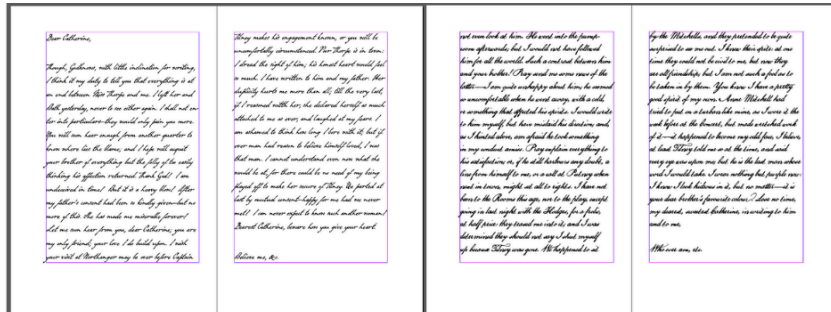 Dear Catherine,
Though, Godknows, with little inclination for writing,
I think it my duty to tell you that everything is at
an end between Miss Thorpe and me. I left her and
Bath yesterday, never to see either again. I shall not en-
ter into particulars—they would only pain you more.
You will soon hear enough from another quarter to
know where lies the blame; and I hope will acquit
your brother of everything but the folly of too easily
thinking his affection returned. Thank God! I am
undeceived in time! But it is a heavy blow! After
my father's consent had been so kindly given—but no
more of this. She has made me miserable forever!
Let me soon hear from you, dear Catherine; you are
my only friend; your love I do build upon. I wish
your visit at Northanger may be over before Captain
Tilney makes his engagement known, or you will be
uncomfortably circumstanced. Poor Thorpe is in town:
I dread the sight of him; his honest heart would feel
so much. I have written to him and my father. Her
duplicity hurts me more than all; till the very last,
if I reasoned with her, she declared herself as much
attached to me as ever, and laughed at my fears. I
am ashamed to think how long I bore with it; but if
ever man had reason to believe himself loved, I was
that man. I cannot understand even now what she
would be at, for there could be no need of my being
played off to make her secure of Tilney. We parted at
last by mutual consent—happy for me had we never
met! I can never expect to know such another woman!
Dearest Catherine, beware how you give your heart.
Believe me, &c.
not even look at him. He went into the pump-
room afterwards; but I would not have followed
him for all the world. Such a contrast between him
and your brother! Pray send me some news of the
latter—I am quite unhappy about him; he seemed
so uncomfortable when he went away, with a cold,
or something that affected his spirits. I would write
to him myself, but have mislaid his direction; and,
as I hinted above, am afraid he took something
in my conduct amiss. Pray explain everything to
his satisfaction; or, if he still harbours any doubt, a
line from himself to me, or a call at Putney when
next in town, might set all to rights. I have not
been to the Rooms this age, nor to the play, except
going in last night with the Hodges, for a frolic,
at half price: they teased me into it; and I was
determined they should not say I shut myself
up because Tilney was gone. We happened to sit
by the Mitchells, and they pretended to be quite
surprised to see me out. I knew their spite: at one
time they could not be civil to me, but now they
are all friendship; but I am not such a fool as to
be taken in by them. You know I have a pretty
good spirit of my own. Anne Mitchell had
tried to put on a turban like mine, as I wore it the
week before at the Concert, but made wretched work
of it—it happened to become my odd face, I believe,
at least Tilney told me so at the time, and said
every eye was upon me; but he is the last man whose
word I would take. I wear nothing but purple now:
I know I look hideous in it, but no matter—it is
your dear brother's favourite colour. Lose no time,
my dearest, sweetest Catherine, in writing to him
and to me,
Who ever am, etc.